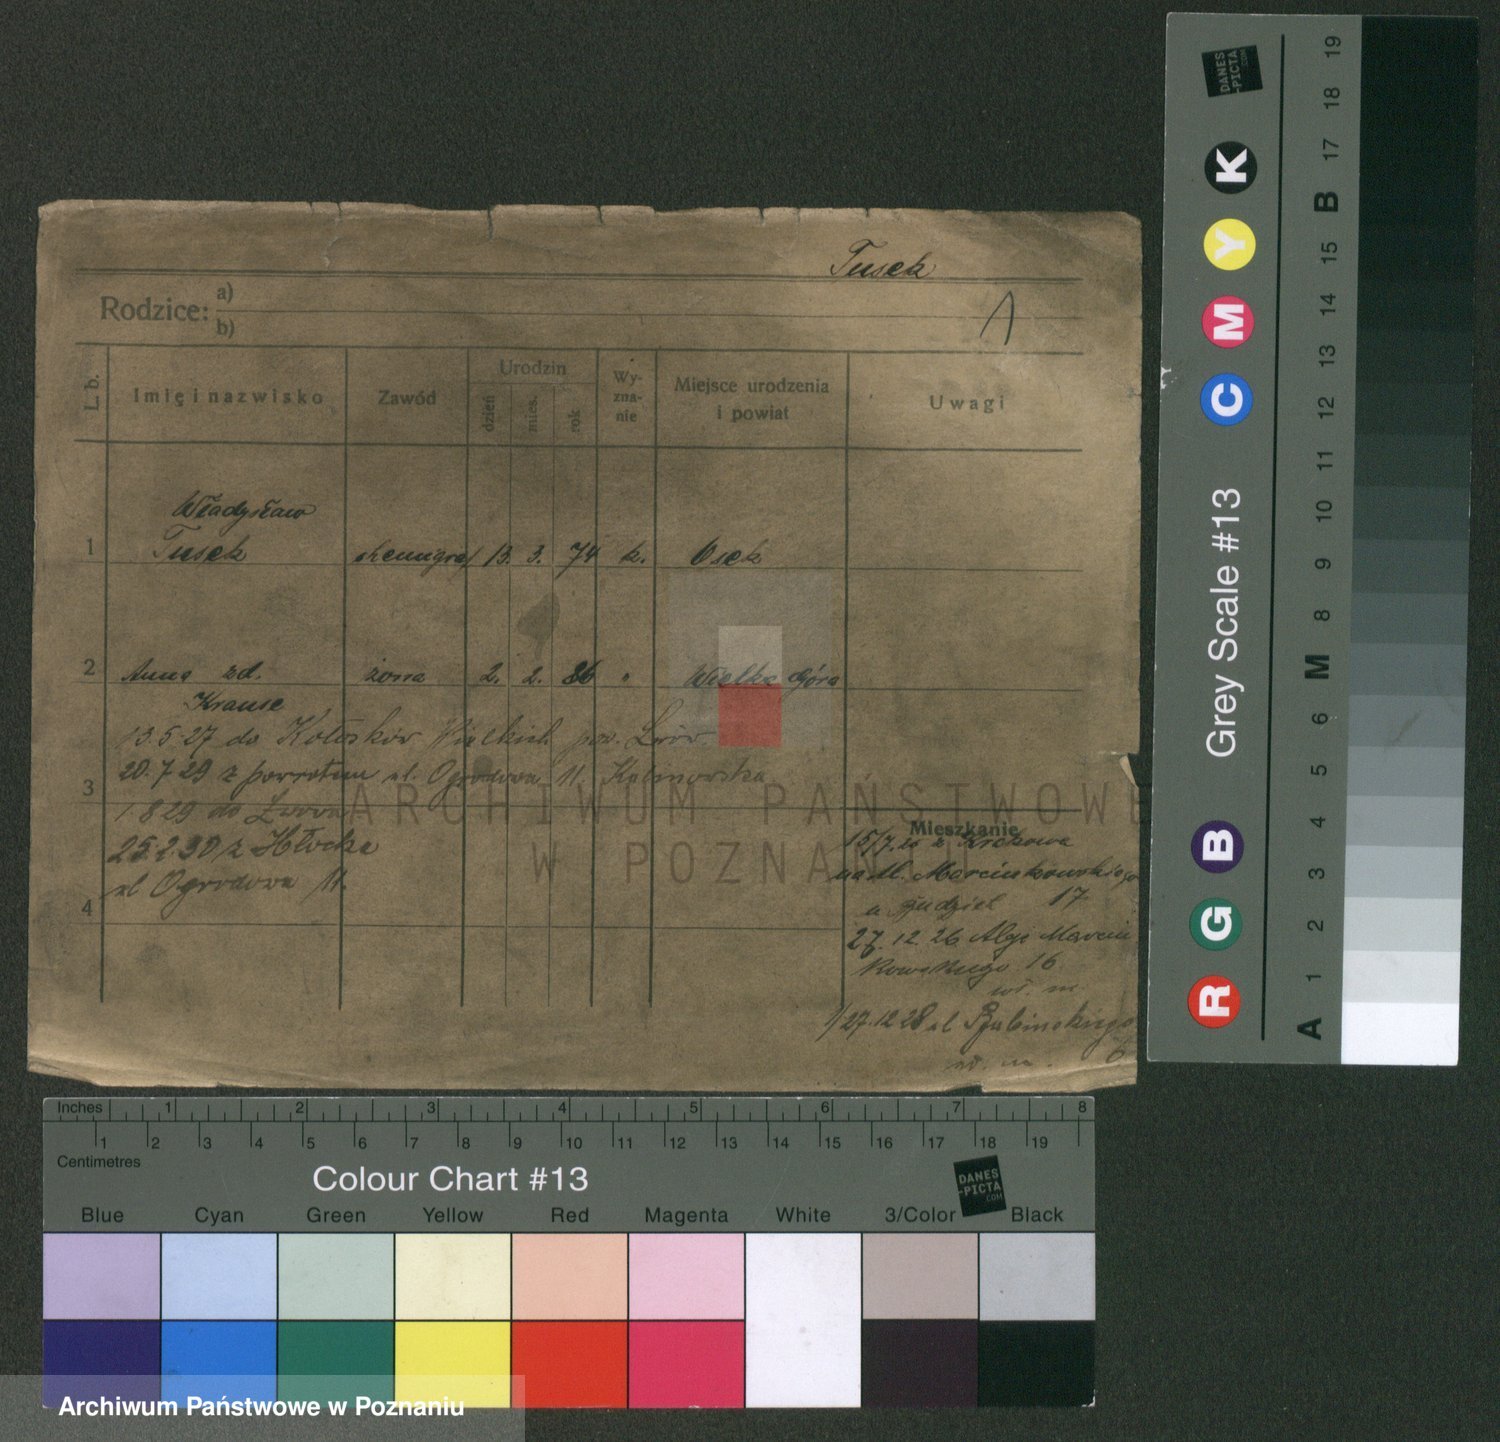 Tusek
1
Rodzice: a)
b)
L b. Imię i nazwisko Zawód Urodzin Wy-zna-nie Miejsce urodzenia i powiat Uwagi
dzień mies. rok
Władysław
1 Tusek 13. 3. 74 k. Osek
2 Anna zd. żona 2. 2. 86 " Wielka Góra
Krause
13.5.27 do Wielkich pow. Lwów.
20.7.29 z powrotem ul. Ogrodowa 11. Kalinowska
3
1 8 29 do Lwowa
25.2.30 z
ul Ogrodowa 11.
4
Mieszkanie
15/7. z Krakowa
Marcinkowskiego
u 17
27.12 26 Aleje Marcin
kowskiego 16
wł. m.
27.12 28 ul
wł. m. 6
ARCHIWUM PAŃSTWOWE
W POZNANIU
DANES
-PICTA
.COM
K
Y
M
C
Grey Scale #13
B
G
R
A 1 2 3 4 5 6 M 8 9 10 11 12 13 14 15 B 17 18 19
Inches 1 2 3 4 5 6 7 8
1 2 3 4 5 6 7 8 9 10 11 12 13 14 15 16 17 18 19
Centimetres
Colour Chart #13
DANES
-PICTA
.COM
Blue Cyan Green Yellow Red Magenta White 3/Color Black
Archiwum Państwowe w Poznaniu